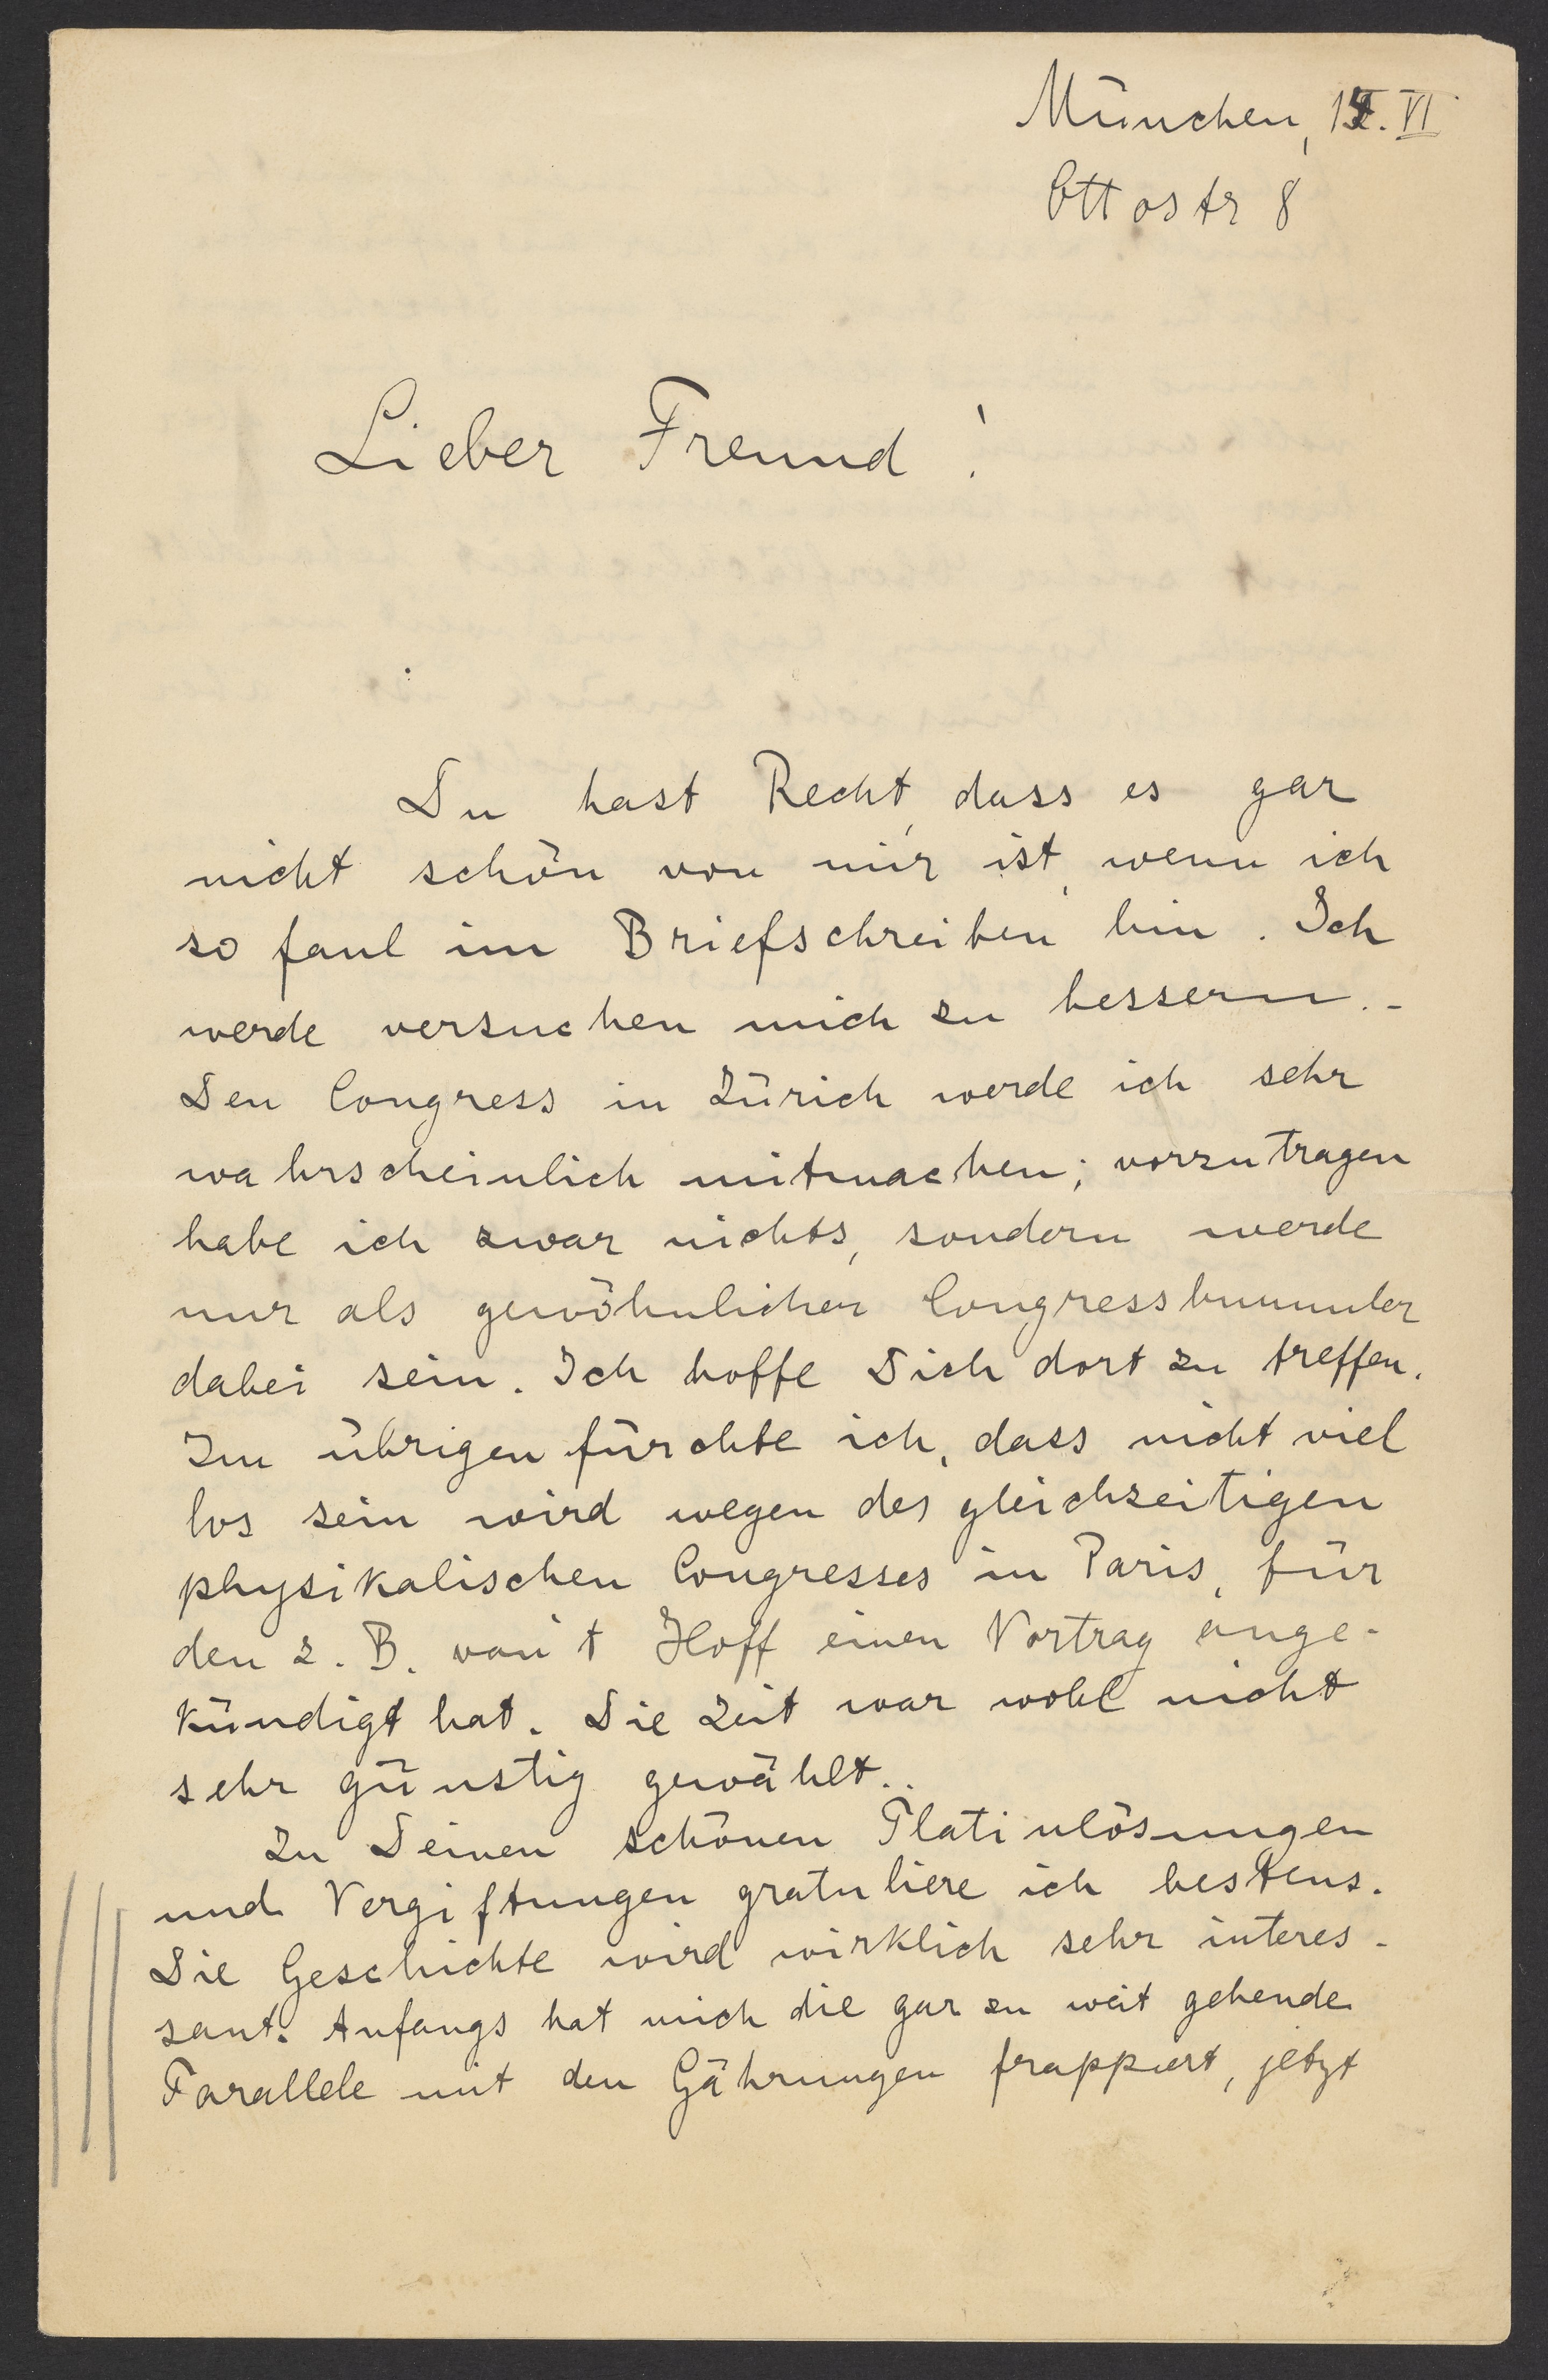 München, 1. VI
Ottostr 8
Lieber Freund!
Du hast Recht, dass es gar
nicht schön von mir ist, wenn ich
so faul im Briefschreiben bin. Ich
werde versuchen mich zu bessern. -
Den Congress in Zürich werde ich sehr
wahrscheinlich mitmachen; vorzutragen
habe ich zwar nichts, sondern werde
nur als gewöhnlicher Congressbummler
dabei sein. Ich hoffe Dich dort zu treffen.
Im übrigen fürchte ich, dass nicht viel
los sein wird wegen des gleichzeitigen
physikalischen Congresses in Paris, für
den z. B. van't Hoff einen Vortrag ange-
kündigt hat. Die Zeit war wohl nicht
sehr günstig gewählt..
Zu Deinen schönen Platinlösungen
und Vergiftungen gratuliere ich bestens.
Die Geschichte wird wirklich sehr interes-
sant. Anfangs hat mich die gar zu weit gehende
Parallele mit den Gährungen frappiert, jetzt